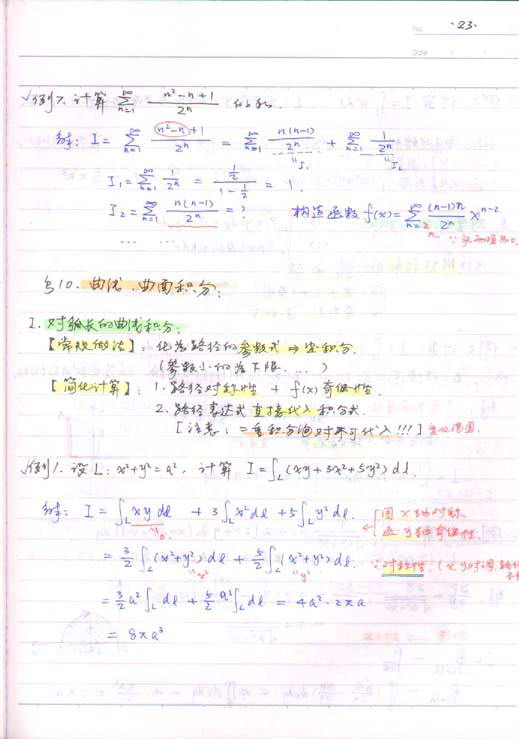 No. ·23·
Date
√例7. 计算 ∑_{n=1}^{∞} (n²-n+1)/2ⁿ 的和.
解: I = ∑_{n=1}^{∞} (n²-n+1)/2ⁿ = ∑_{n=1}^{∞} n(n-1)/2ⁿ + ∑_{n=1}^{∞} 1/2ⁿ
"I₁ "I₂
I₁ = ∑_{n=1}^{∞} 1/2ⁿ = (1/2)/(1-1/2) = 1.
I₂ = ∑_{n=1}^{∞} n(n-1)/2ⁿ = ? 构造函数 f(x) = ∑_{n=2}^{∞} (n-1)n/2ⁿ x^{n-2}
... ... ∵ 首项为0.
§10. 曲线、曲面积分:
I. 对弧长的曲线积分:
【常规做法】: 化为路径的参数式 ⇒ 定积分.
(参数小的为下限. ...)
【简化计算】: 1. 路径对称性 + f(x)奇偶性.
2. 路径表达式直接代入积分式.
[注意: 二重积分绝对不可代入!!!]
√例1. 设 L: x²+y²=a², 计算 I = ∫_L (xy+3x²+5y²) dl.
解: I = ∫_L xy dl + 3∫_L x² dl + 5∫_L y² dl.
"0 [因 x 轴对称, 应 y 轴奇偶性.
= 3/2 ∫_L (x²+y²) dl + 5/2 ∫_L (x²+y²) dl. ∵ 对称性.
"x² "y²
= 3/2 a² ∫_L dl + 5/2 a² ∫_L dl = 4a²·2πa
= 8πa³